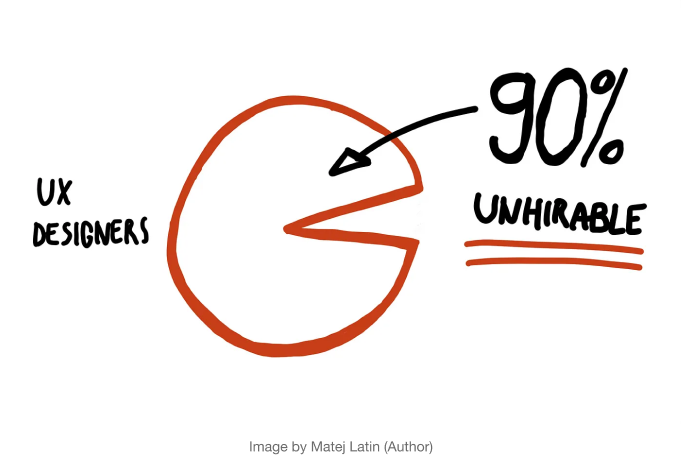 UX
DESIGNERS
90%
UNHIRABLE
Image by Matej Latin (Author)